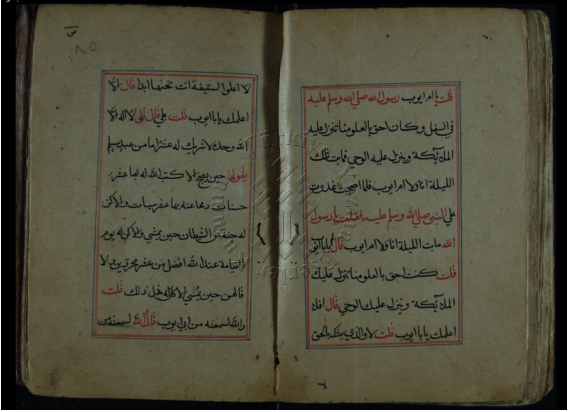 قلت يا ام ايوب رسول الله صلي الله وسلم عليه
في السفل وكان احق بالعلو منا تنزل عليه
الملائكة وينزل عليه الوحي فما بت تلك
الليلة انا ولا ام ايوب فلما اصبحت غدوت
علي النبي صلي الله وسلم عليه فقلت يا رسول
الله ما بت الليلة انا ولا ام ايوب قال
قلت كنت احق بالعلو منا تنزل عليك
الملائكة وينزل عليك الوحي قال افلا
اعلمك يا ابا ايوب قلت لا والذي بعثك بالحق
لا اعلو السقيفة انت تحتها ابدا قال الا
اعلمك يا ابا ايوب قلت بلي قال قل لا اله الا
الله وحده لا شريك له عشرا ما من عبد مسلم
يقولها حين يصبح الا كتب الله له بها عشر
حسنات ومحا عنه بها عشر سيات والا كن
له جنة من الشيطان حين يمشي والا كن له يوم
القيامة عند الله افضل من عشر محررين ولا
قالهن حين يمسي الا كان له مثل ذلك قلت
والله لسمعته من ابي ايوب قال الله لسمعته من